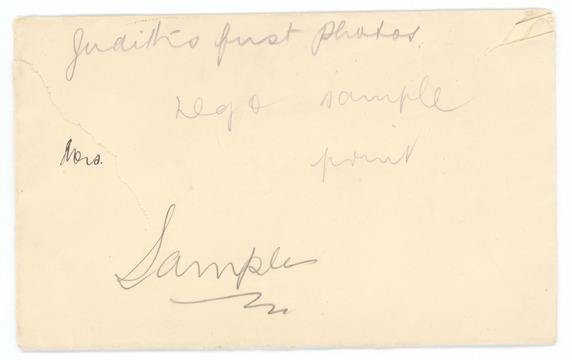 Judith's first photos
negs sample
print
Mrs.
Sample